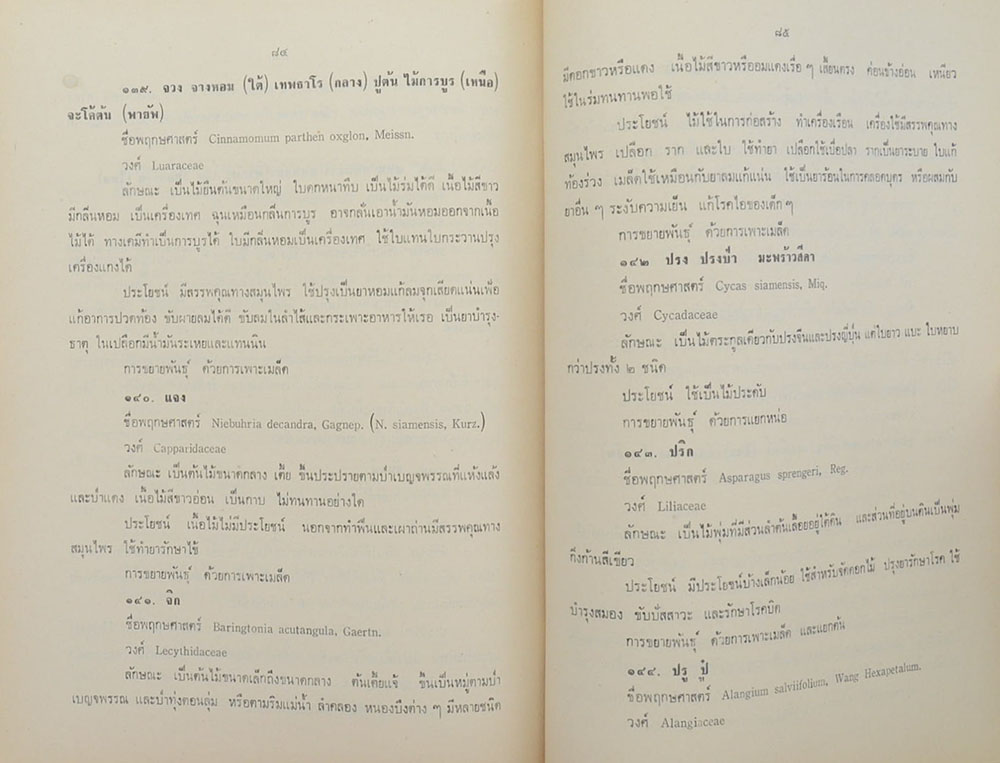 ๘๔
๑๓๙. จวง จางหอม (ใต้) เทพธาโร (กลาง) ปูต้น ไม้การบูร (เหนือ)
จะไค้ต้น (พายัพ)
ชื่อพฤกษศาสตร์ Cinnamomum parthen oxglon, Meissn.
วงศ์ Luaraceae
ลักษณะ เป็นไม้ยืนต้นขนาดใหญ่ ใบดกหนาทึบ เป็นไม้ร่มได้ดี เนื้อไม้สีขาว
มีกลิ่นหอม เป็นเครื่องเทศ ฉุนเหมือนกลิ่นการบูร อาจกลั่นเอาน้ำมันหอมออกจากเนื้อ
ไม้ได้ ทางเคมีทำเป็นการบูรได้ ใบมีกลิ่นหอมเป็นเครื่องเทศ ใช้ใบแทนใบกระวานปรุง
เครื่องแกงได้
ประโยชน์ มีสรรพคุณทางสมุนไพร ใช้ปรุงเป็นยาหอมแก้ลมจุกเสียดแน่นเฟ้อ
แก้อาการปวดท้อง ขับผายลมได้ดี ขับลมในลำไส้และกระเพาะอาหารให้เรอ เป็นยาบำรุง-
ธาตุ ในเปลือกมีน้ำมันระเหยและแทนนิน
การขยายพันธุ์ ด้วยการเพาะเมล็ด
๑๔๐. แจง
ชื่อพฤกษศาสตร์ Niebuhria decandra, Gagnep. (N. siamensis, Kurz.)
วงศ์ Capparidaceae
ลักษณะ เป็นต้นไม้ขนาดกลาง เตี้ย ขึ้นประปรายตามป่าเบญจพรรณที่แห้งแล้ง
และป่าแดง เนื้อไม้สีขาวอ่อน เป็นกาบ ไม่ทนทานอย่างใด
ประโยชน์ เนื้อไม้ไม่มีประโยชน์ นอกจากทำฟืนและเผาถ่านมีสรรพคุณทาง
สมุนไพร ใช้ทำยารักษาไข้
การขยายพันธุ์ ด้วยการเพาะเมล็ด
๑๔๑. จิก
ชื่อพฤกษศาสตร์ Baringtonia acutangula, Gaertn.
วงศ์ Lecythidaceae
ลักษณะ เป็นต้นไม้ขนาดเล็กถึงขนาดกลาง ต้นเตี้ยแจ้ ขึ้นเป็นหมู่ตามป่า
เบญจพรรณ และป่าทุ่งตอนลุ่ม หรือตามริมแม่น้ำ ลำคลอง หนองบึงต่าง ๆ มีหลายชนิด
๘๕
มีดอกขาวหรือแดง เนื้อไม้สีขาวหรืออมแดงเรื่อ ๆ เสี้ยนตรง ค่อนข้างอ่อน เหนียว
ใช้ในร่มทนทานพอใช้
ประโยชน์ ไม้ใช้ในการก่อสร้าง ทำเครื่องเรือน เครื่องใช้มีสรรพคุณทาง
สมุนไพร เปลือก ราก และใบ ใช้ทำยา เปลือกใช้เบื่อปลา รากเป็นยาระบาย ใบแก้
ท้องร่วง เมล็ดใช้เหมือนกับยาลมแก้แน่น ใช้เป็นยาร้อนในการคลอดบุตร หรือผสมกับ
ยาอื่น ๆ ระงับความเย็น แก้โรคไอของเด็ก ๆ
การขยายพันธุ์ ด้วยการเพาะเมล็ด
๑๔๒ ปรง ปรงป่า มะพร้าวสีดา
ชื่อพฤกษศาสตร์ Cycas siamensis, Miq.
วงศ์ Cycadaceae
ลักษณะ เป็นไม้ตระกูลเดียวกับปรงจีนและปรงญี่ปุ่น แต่ใบยาว แบะ ใบหยาบ
กว่าปรงทั้ง ๒ ชนิด
ประโยชน์ ใช้เป็นไม้ประดับ
การขยายพันธุ์ ด้วยการแยกหน่อ
๑๔๓. ปริก
ชื่อพฤกษศาสตร์ Asparagus sprengeri, Reg.
วงศ์ Liliaceae
ลักษณะ เป็นไม้พุ่มที่มีส่วนลำต้นเลื้อยอยู่ใต้ดิน และส่วนที่อยู่บนดินเป็นพุ่ม
กิ่งก้านสีเขียว
ประโยชน์ มีประโยชน์บ้างเล็กน้อย ใช้สำหรับจัดดอกไม้ ปรุงยารักษาโรค ใช้
บำรุงสมอง ขับปัสสาวะ และรักษาโรคบิด
การขยายพันธุ์ ด้วยการเพาะเมล็ด และแยกต้น
๑๔๔. ปรู ปู๋
ชื่อพฤกษศาสตร์ Alangium salviifolium, Wang Hexapetalum.
วงศ์ Alangiaceae